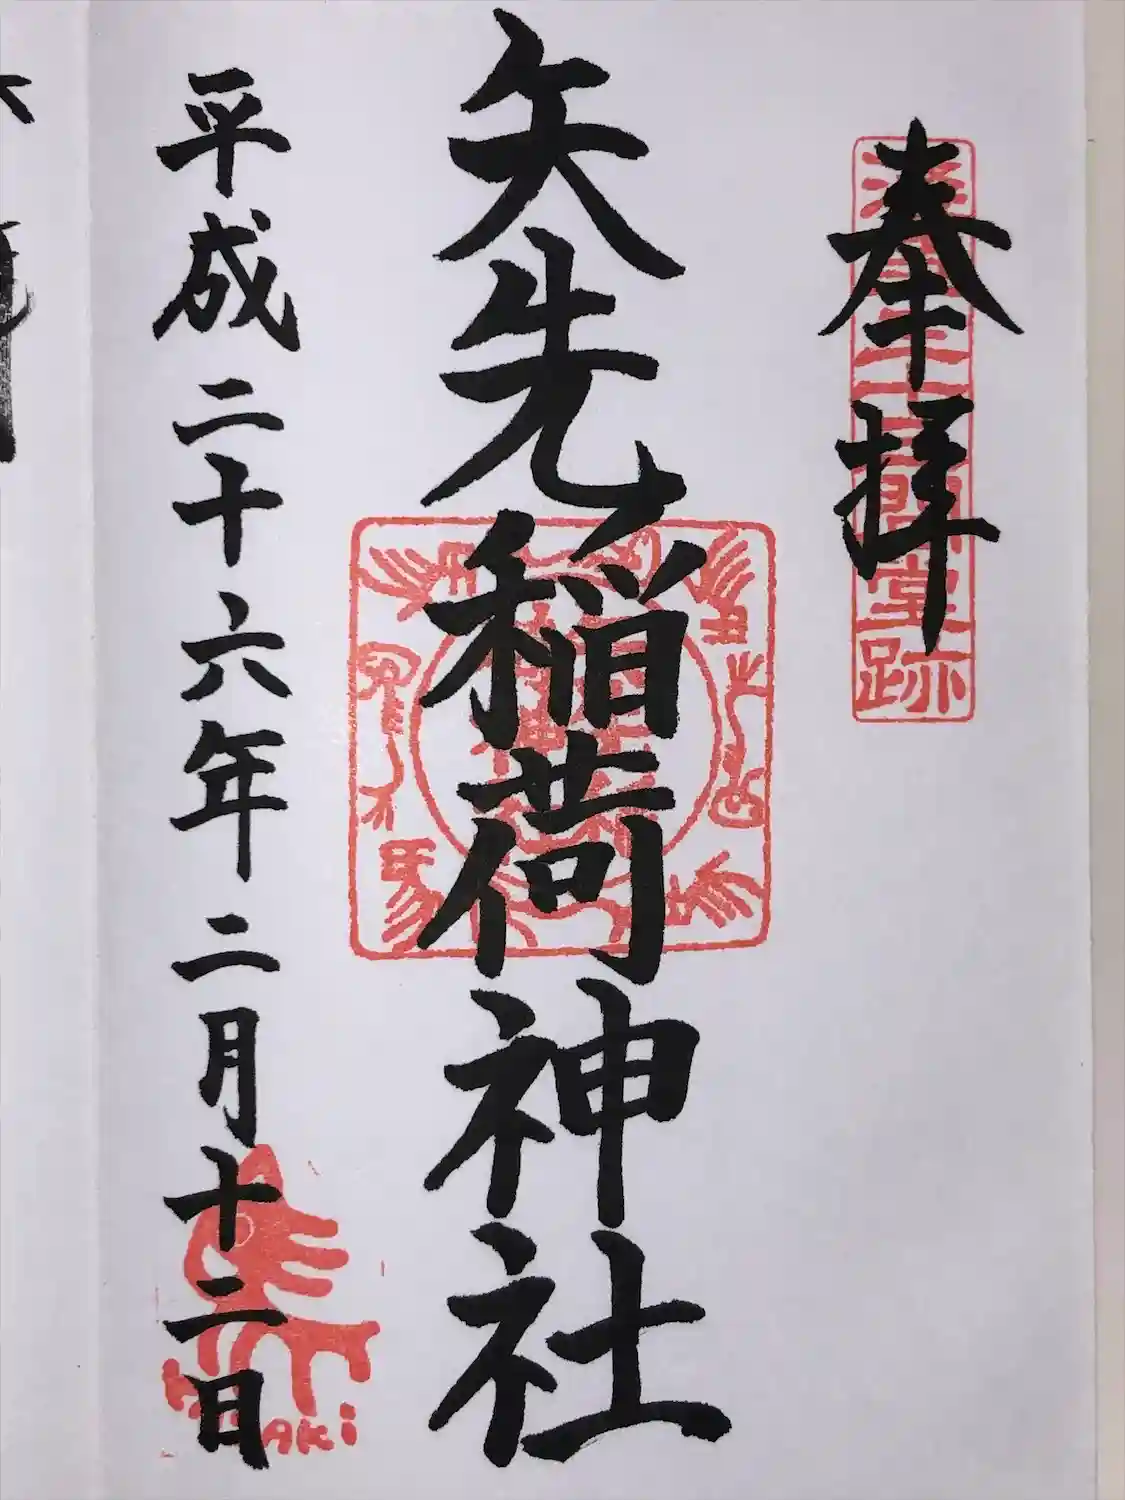 奉拝
浅草三十三間堂跡
矢先稲荷神社
平成二十六年二月十二日